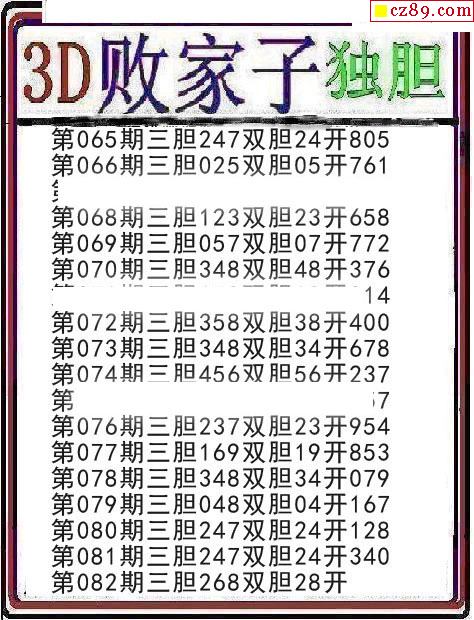 cz89.com
3D败家子独胆
第065期三胆247双胆24开805
第066期三胆025双胆05开761
第068期三胆123双胆23开658
第069期三胆057双胆07开772
第070期三胆348双胆48开376
14
第072期三胆358双胆38开400
第073期三胆348双胆34开678
第074期三胆456双胆56开237
第 7
第076期三胆237双胆23开954
第077期三胆169双胆19开853
第078期三胆348双胆34开079
第079期三胆048双胆04开167
第080期三胆247双胆24开128
第081期三胆247双胆24开340
第082期三胆268双胆28开